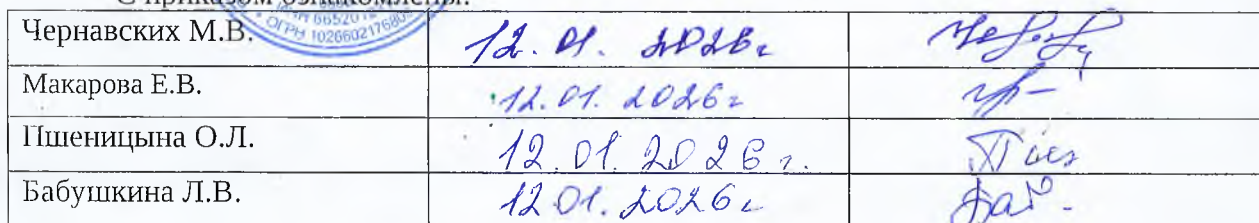 С приказом ознакомлены:
ОГРН 102660217680
Чернавских М.В. 12.01.2026г
Макарова Е.В. 12.01.2026г
Пшеницына О.Л. 12.01.2026г.
Бабушкина Л.В. 12.01.2026г